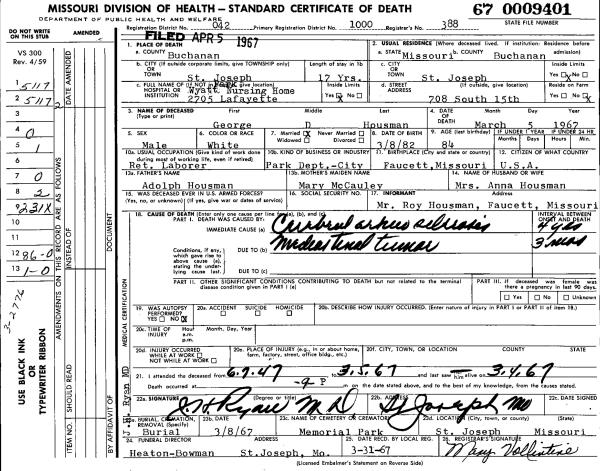 MISSOURI DIVISION OF HEALTH — STANDARD CERTIFICATE OF DEATH
67 0009401
DEPARTMENT OF PUBLIC HEALTH AND WELFARE
Registration District No. 042 Primary Registration District No. 1000 Registrar's No. 388 STATE FILE NUMBER
DO NOT WRITE ON THIS STUB
AMENDED
FILED APR 5 1967
VS 300
Rev. 4/59
DATE AMENDED
1. PLACE OF DEATH
a. COUNTY Buchanan
2. USUAL RESIDENCE (Where deceased lived. If institution: Residence before admission)
a. STATE Missouri b. COUNTY Buchanan
b. CITY (If outside corporate limits, give TOWNSHIP only) OR TOWN St. Joseph
Length of stay in 1b 17 Yrs.
c. CITY OR TOWN St. Joseph
Inside Limits Yes No
c. FULL NAME OF (If not in hospital, give location) HOSPITAL OR INSTITUTION Wyatt Park Nursing Home
2705 Lafayette
Inside Limits Yes No
d. STREET ADDRESS 708 South 15th
Reside on Farm Yes No
3. NAME OF DECEASED (Type or print) First Middle Last
George D Housman
4. DATE OF DEATH Month Day Year
March 5 1967
5. SEX Male
6. COLOR OR RACE White
7. Married Never Married Widowed Divorced
8. DATE OF BIRTH 3/8/82
9. AGE (last birthday) 84
IF UNDER 1 YEAR Months Days
IF UNDER 24 HR. Hours Min.
10a. USUAL OCCUPATION (Give kind of work done during most of working life, even if retired)
Ret. Laborer
10b. KIND OF BUSINESS OR INDUSTRY
Park Dept.-City
11. BIRTHPLACE (City and state or country)
Faucett, Missouri
12. CITIZEN OF WHAT COUNTRY
U.S.A.
13a. FATHER'S NAME Adolph Housman
13b. MOTHER'S MAIDEN NAME Mary McCauley
14. NAME OF HUSBAND OR WIFE Mrs. Anna Housman
15. WAS DECEASED EVER IN U.S. ARMED FORCES?
(Yes, no, or unknown) (If yes, give war or dates of service)
16. SOCIAL SECURITY NO.
17. INFORMANT Mr. Roy Housman, Faucett, Missouri
18. CAUSE OF DEATH (Enter only one cause per line for (a), (b), and (c).)
PART I. DEATH WAS CAUSED BY:
IMMEDIATE CAUSE (a) Cerebral arteriosclerosis
INTERVAL BETWEEN ONSET AND DEATH
4 yrs
Conditions, if any, which gave rise to above cause (a), stating the underlying cause last.
DUE TO (b) Mediastinal tumor 3 mos
DUE TO (c)
PART II. OTHER SIGNIFICANT CONDITIONS CONTRIBUTING TO DEATH but not related to the terminal disease condition given in PART I (a)
PART III. If deceased was female was there a pregnancy in last 90 days.
Yes No Unknown
19. WAS AUTOPSY PERFORMED? YES NO
20a. ACCIDENT SUICIDE HOMICIDE
20b. DESCRIBE HOW INJURY OCCURRED. (Enter nature of injury in PART I or PART II of item 18.)
20c. TIME OF INJURY Hour a.m. p.m. Month, Day, Year
20d. INJURY OCCURRED WHILE AT WORK NOT WHILE AT WORK
20e. PLACE OF INJURY (e.g., in or about home, farm, factory, street, office bldg., etc.)
20f. CITY, TOWN, OR LOCATION COUNTY STATE
21. I attended the deceased from 6.9.47 to 3.5.67 and last saw alive on 3.4.67
Death occurred at 9 P m on the date stated above, and to the best of my knowledge, from the causes stated.
22a. SIGNATURE (Degree or title)
22b. ADDRESS St Joseph Mo
22c. DATE SIGNED
23a. BURIAL, CREMATION, REMOVAL (Specify) Burial
23b. DATE 3/8/67
23c. NAME OF CEMETERY OR CREMATORY Memorial Park
23d. LOCATION (City, town, or county) (State)
St. Joseph Missouri
24. FUNERAL DIRECTOR ADDRESS
Heaton-Bowman St. Joseph, Mo.
25. DATE RECD. BY LOCAL REG. 3-31-67
26. REGISTRAR'S SIGNATURE
(Licensed Embalmer's Statement on Reverse Side)
1 5117
2 5117
3
4 0
5 1
6
7 0
8 2
9 231X
10
11
12 86-0
13 1-0
USE BLACK INK OR TYPEWRITER RIBBON
AMENDMENTS ON THIS RECORD ARE AS FOLLOWS
INSTEAD OF
DOCUMENT
MEDICAL CERTIFICATION
ITEM NO. SHOULD READ
BY AFFIDAVIT OF